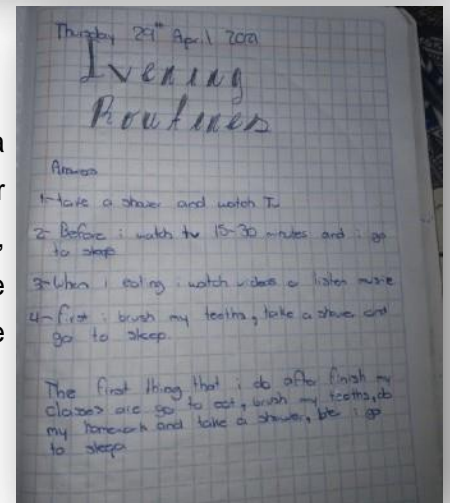 Thursday 29th April 2021
Evening
Routines
Answers
1- take a shower and watch Tv
2- Before i watch tv 15-30 minutes and i go
to sleep
3- When i eating i watch videos o listen music
4- first i brush my teeths, take a shower and
go to sleep.
The first thing that i do after finish my
classes are go to eat, brush my teeths, do
my homework and take a shower, i go
to sleep